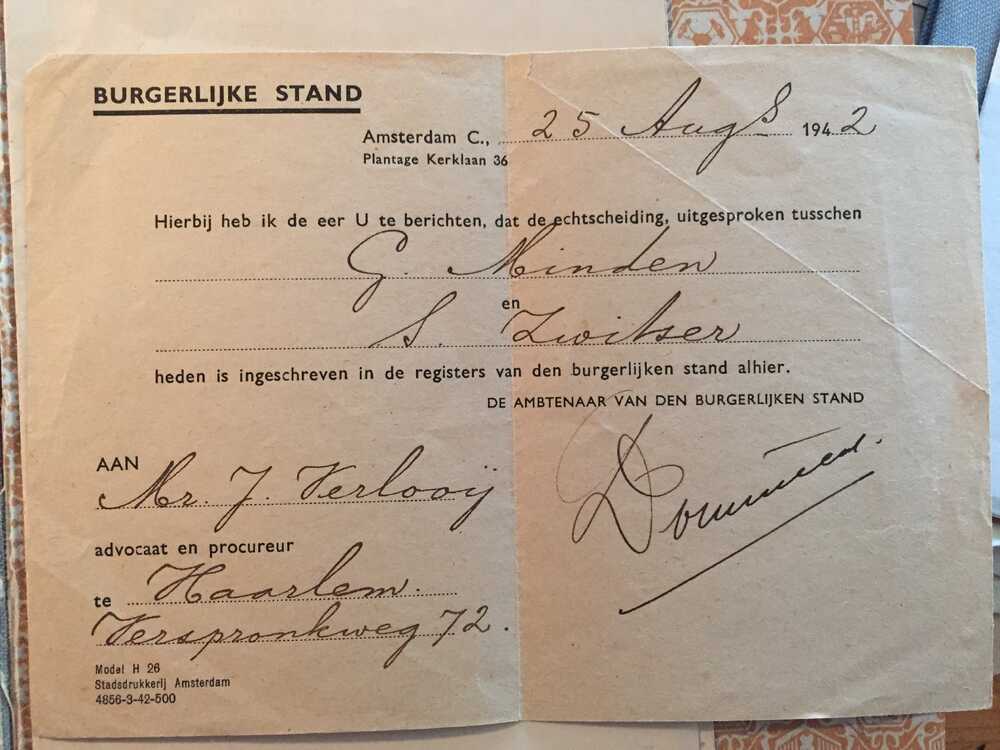 BURGERLIJKE STAND
Amsterdam C., 25 Aug s 1942
Plantage Kerklaan 36
Hierbij heb ik de eer U te berichten, dat de echtscheiding, uitgesproken tusschen
G. Minden
en
S. Zwitser
heden is ingeschreven in de registers van den burgerlijken stand alhier.
DE AMBTENAAR VAN DEN BURGERLIJKEN STAND
AAN
Mr. J. Verlooij
advocaat en procureur
te Haarlem.
Verspronkweg 72.
Model H 26
Stadsdrukkerij Amsterdam
4856-3-42-500